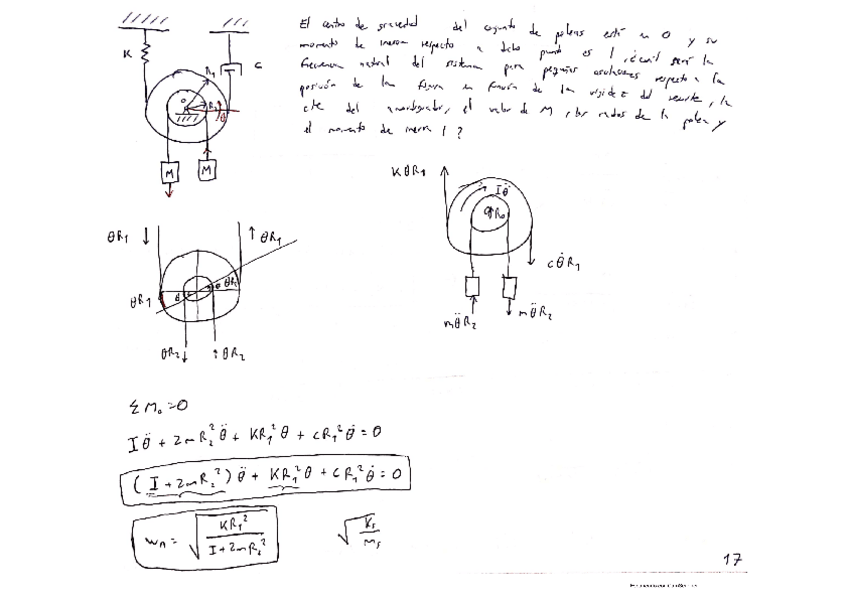 El centro de gravedad del conjunto de poleas está en O y su
momento de inercia respecto a dicho punto es I, ¿cuál será la
frecuencia natural del sistema para pequeñas oscilaciones respecto a la
posición de la figura en función de la rigidez del resorte, la
cte del amortiguador, el valor de M, los radios de la polea y
el momento de inercia I ?
K
C
R₁
O
θ
M
M
KθR₁
Iθ̈
cθ̇R₁
mθ̈R₂
mθ̈R₂
θR₁
θR₁
θR₁
θR₂
θR₂
ΣM₀=0
Iθ̈ + 2mR₂²θ̈ + KR₁²θ + cR₁²θ̇ = 0
(I + 2mR₂²)θ̈ + KR₁²θ + cR₁²θ̇ = 0
wₙ = √(KR₁² / (I + 2mR₂²))
17